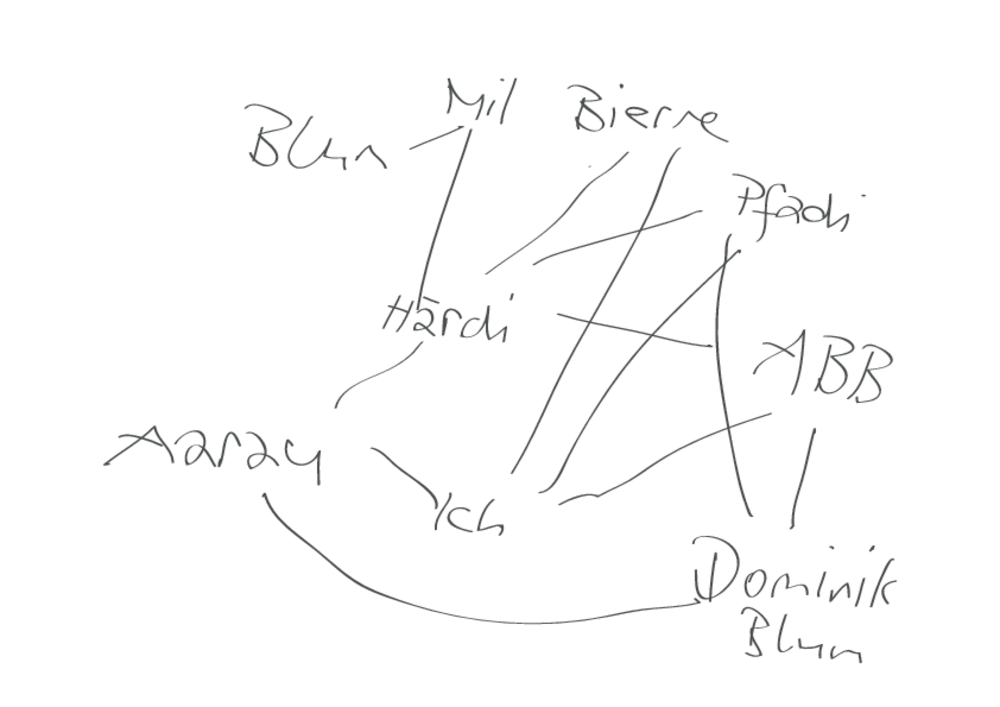 Mil
Bierre
Blum
Pfadi
Härdi
ABB
Aarau
Ich
Dominik
Blum